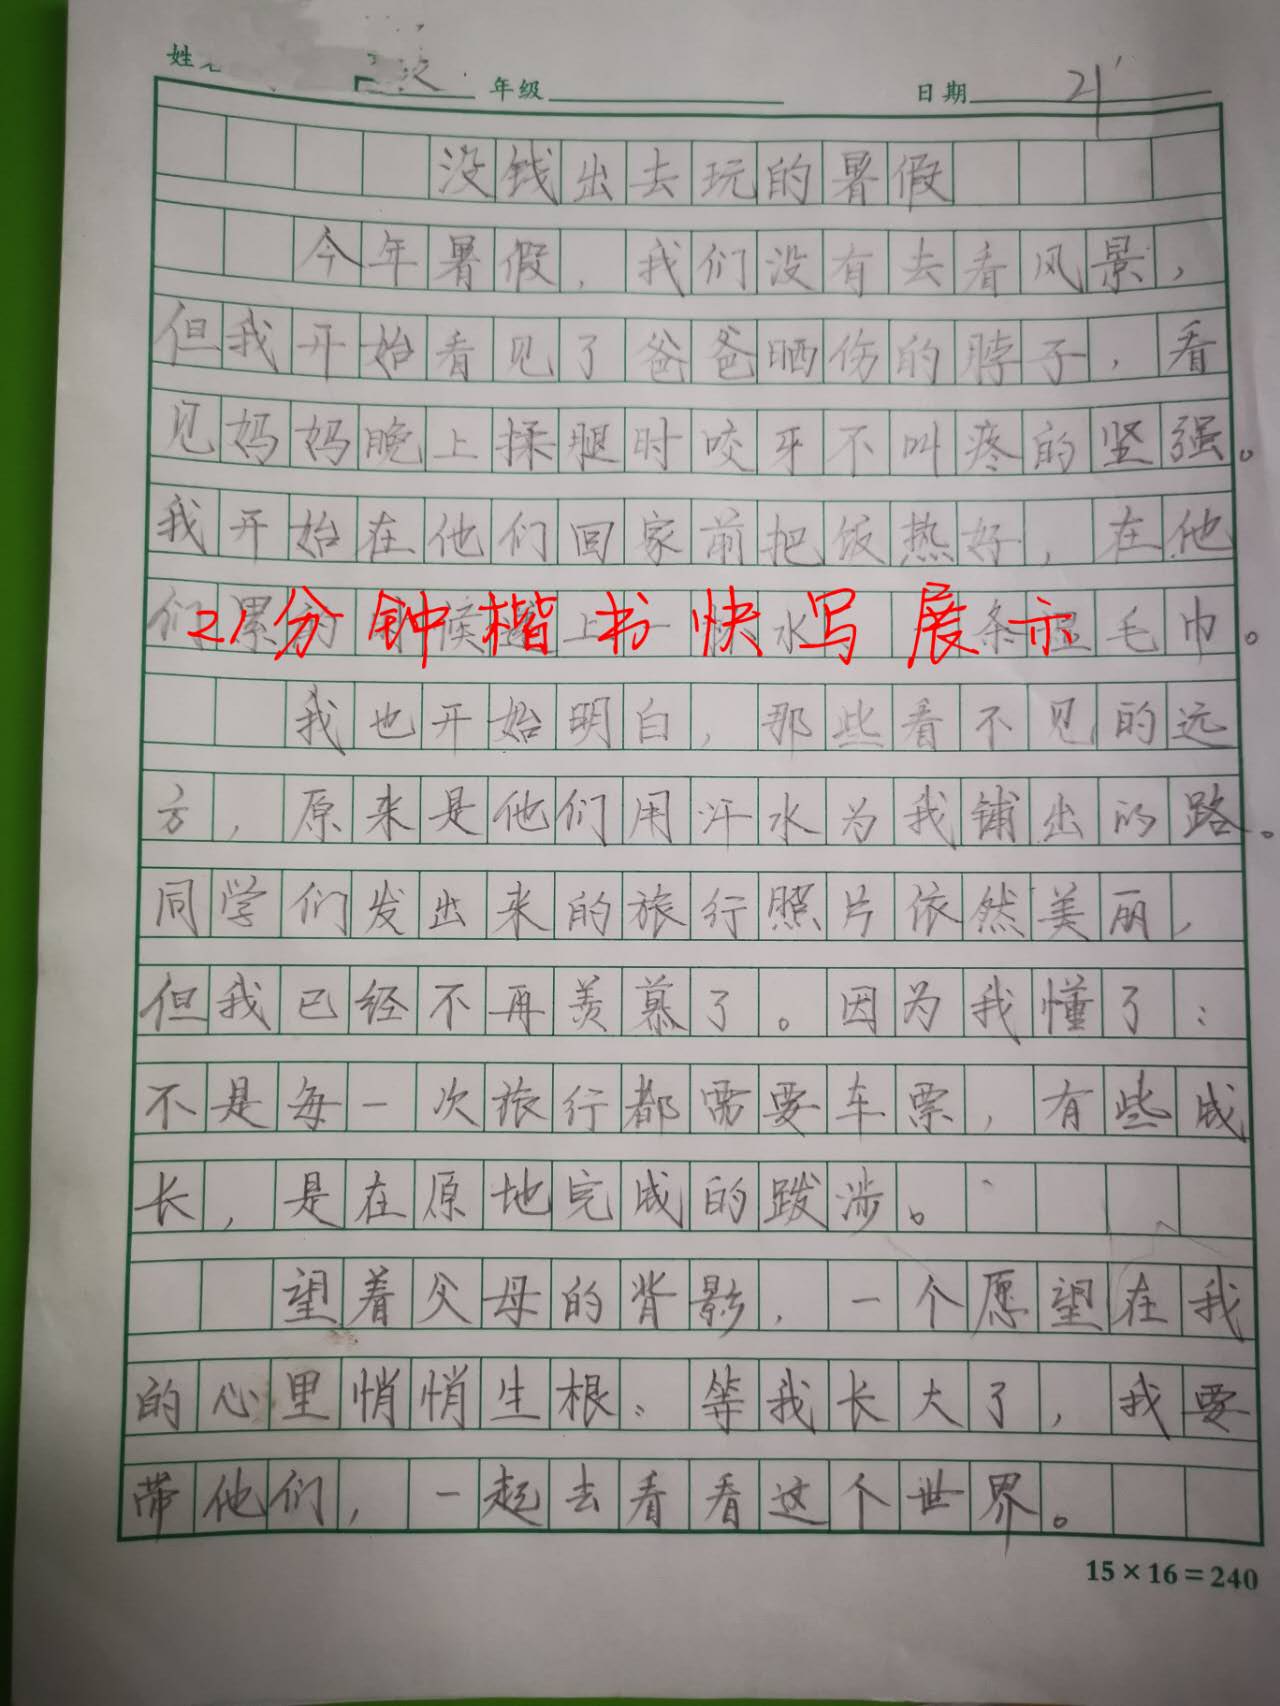 年级 日期 21'
没钱出去玩的暑假
今年暑假，我们没有去看风景，
但我开始看见了爸爸晒伤的脖子，看
见妈妈晚上揉腿时咬牙不叫疼的坚强。
我开始在他们回家前把饭热好，在他
们累 候 上 水 条湿毛巾。
21分钟楷书快写展示
我也开始明白，那些看不见的远
方，原来是他们用汗水为我铺出的路。
同学们发出来的旅行照片依然美丽，
但我已经不再羡慕了。因为我懂了：
不是每一次旅行都需要车票，有些成
长，是在原地完成的跋涉。
望着父母的背影，一个愿望在我
的心里悄悄生根：等我长大了，我要
带他们，一起去看看这个世界。
15×16=240